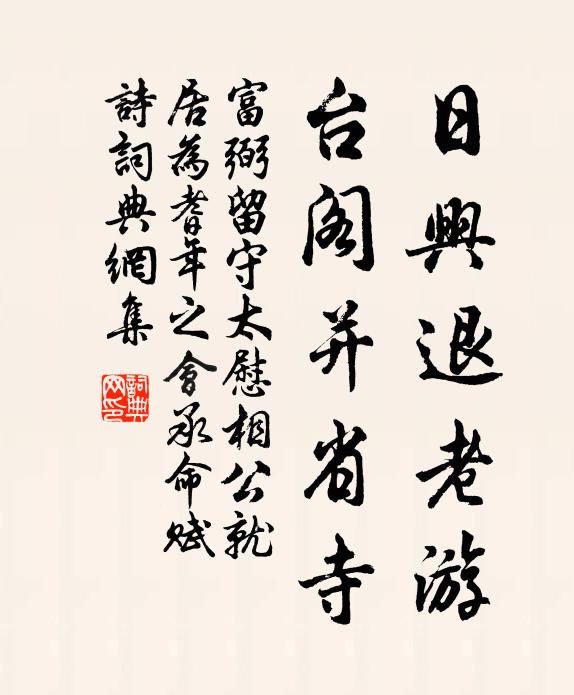 日興退老游
台阁并省寺
富弼留守太慰相公就
居為耆年之會承命赋
詩詞典網集
詞典
网印